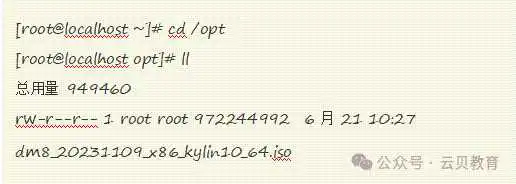 [root@localhost ~]# cd /opt
[root@localhost opt]# ll
总用量 949460
rw-r--r-- 1 root root 972244992 6 月 21 10:27
dm8_20231109_x86_kylin10_64.iso
公众号 · 云贝教育